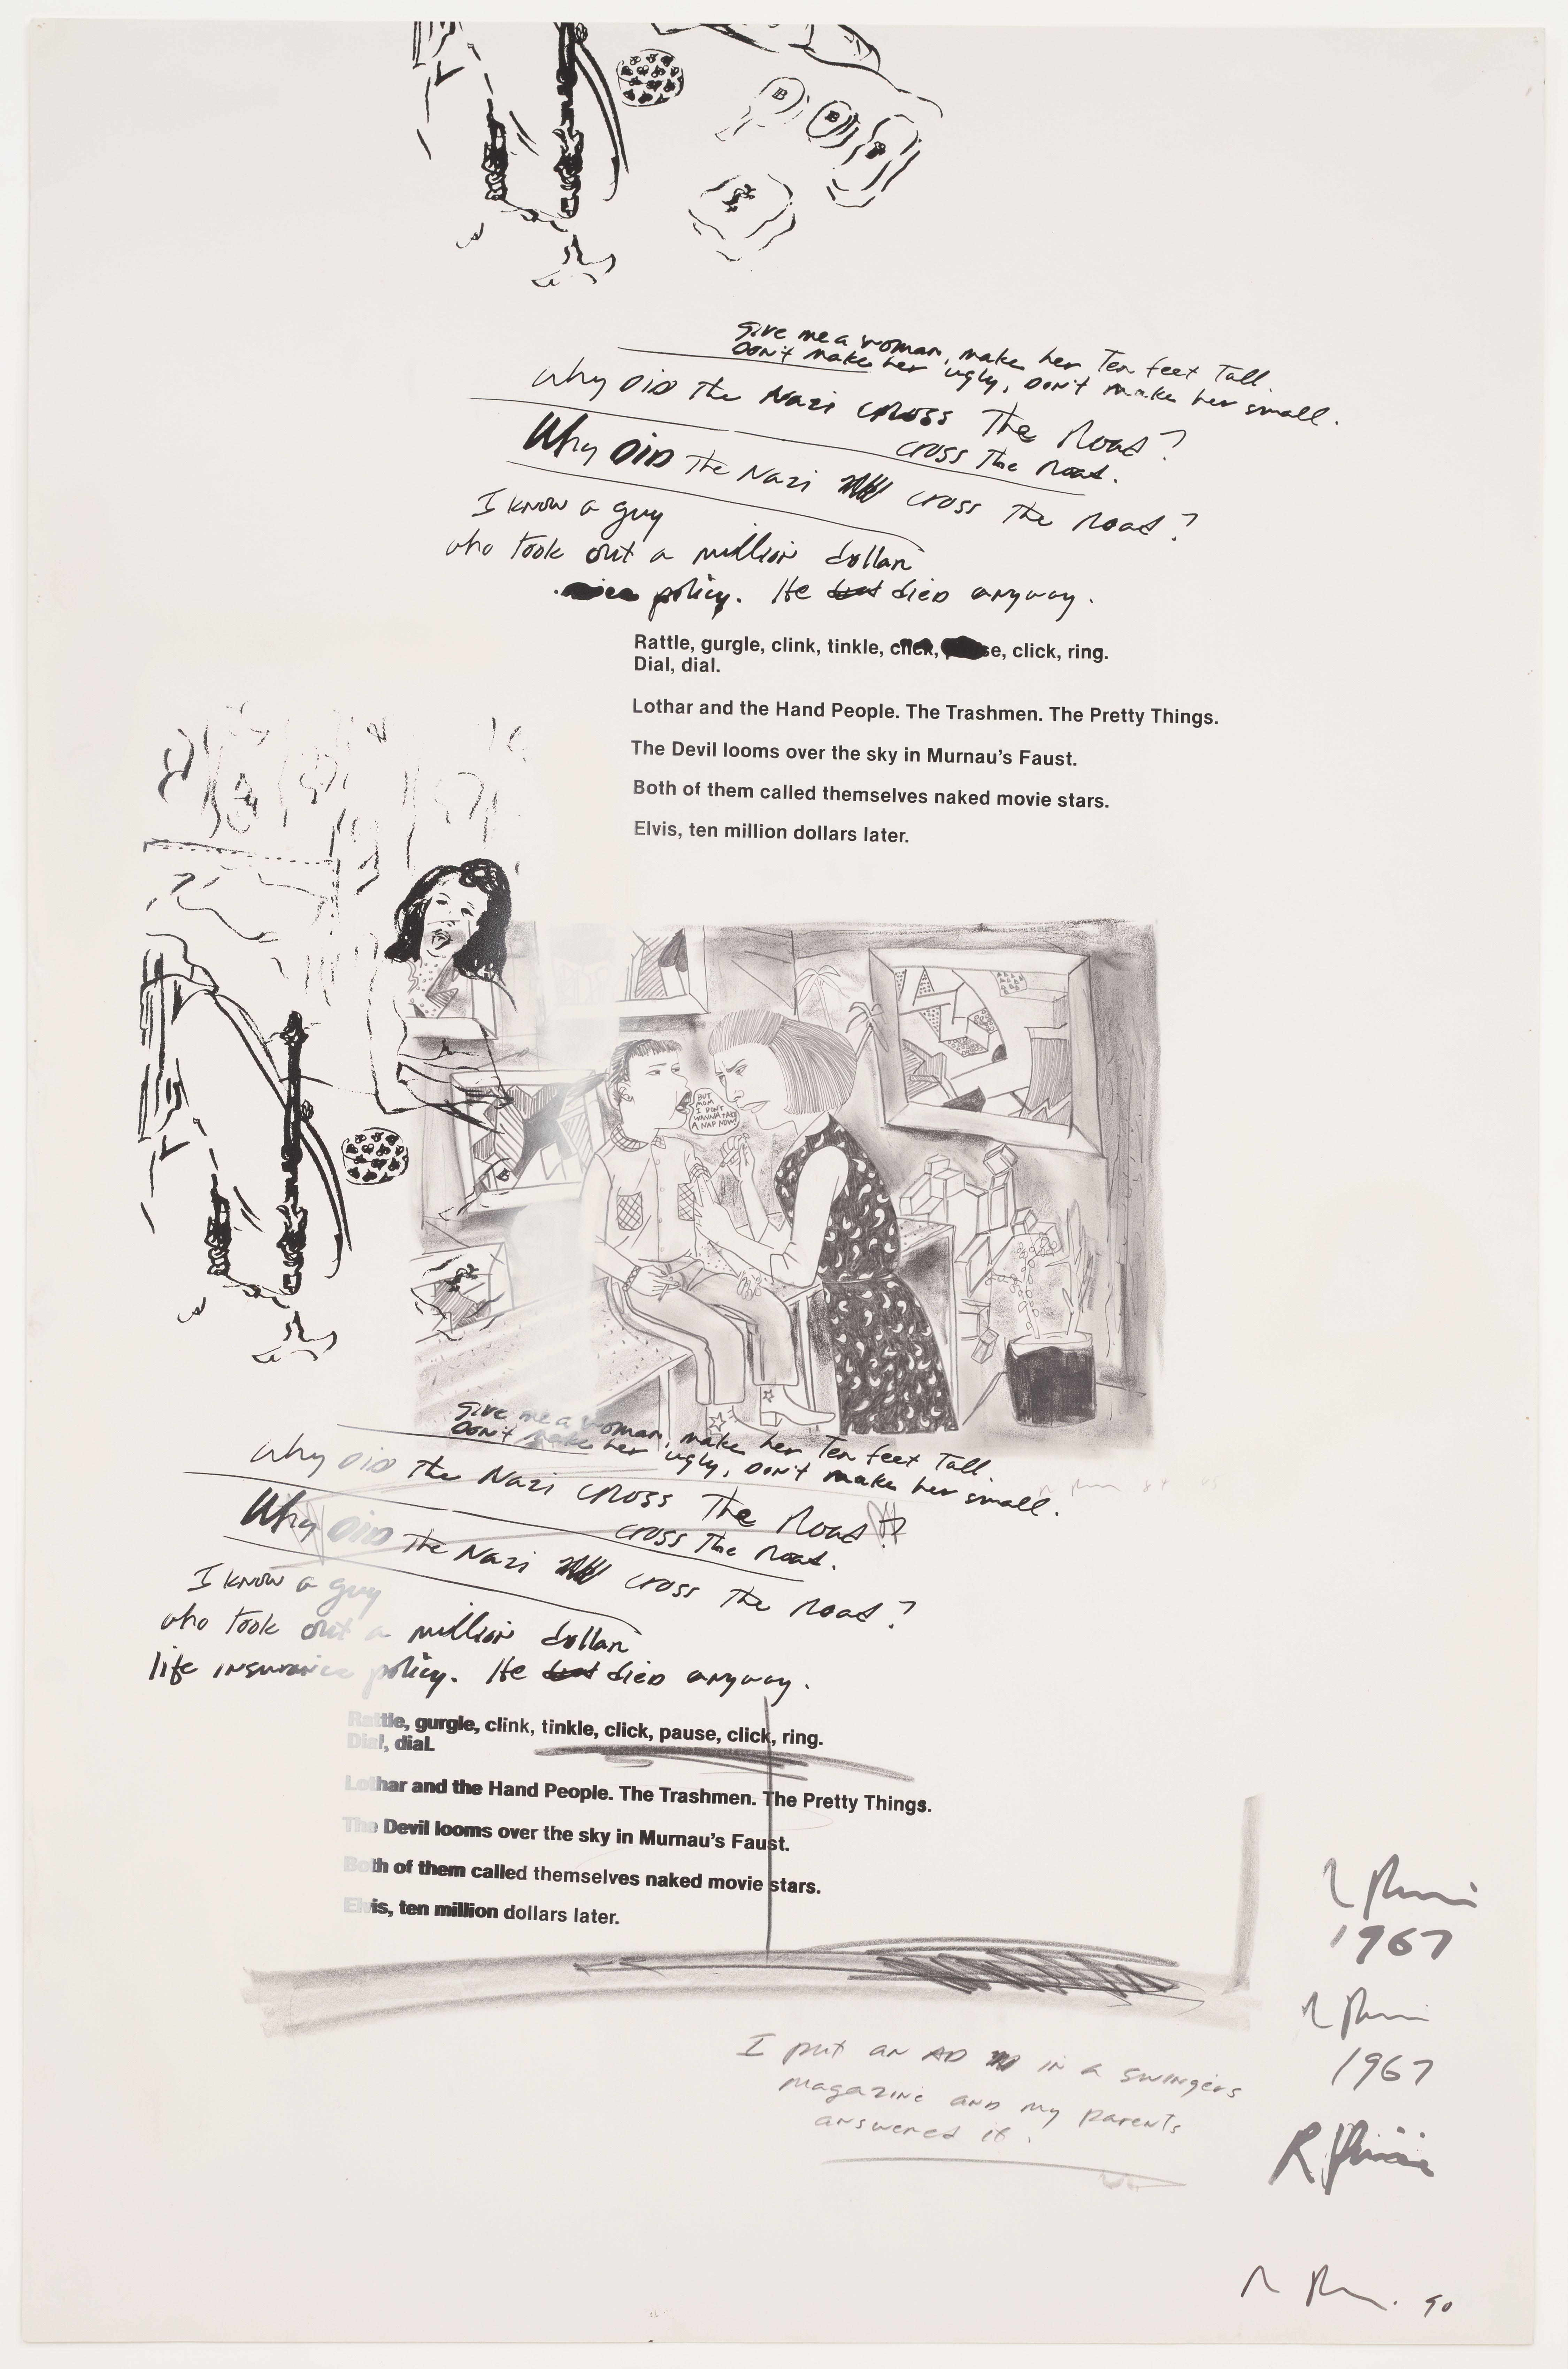 B
B
give me a woman, make her Ten feet Tall.
Don't make her ugly, Don't make her small.
Why DiD The Nazi cross The Road?
cross The Road.
Why DiD The Nazi cross The Road?
I know a guy
who Took out a million dollar
policy. He died anyway.
Rattle, gurgle, clink, tinkle, click, click, ring.
Dial, dial.
Lothar and the Hand People. The Trashmen. The Pretty Things.
The Devil looms over the sky in Murnau's Faust.
Both of them called themselves naked movie stars.
Elvis, ten million dollars later.
BUT
MOM
I DON'T
WANNA TAKE
A NAP NOW!
give me a woman, make her Ten feet Tall.
Don't make her ugly, Don't make her small.
Why DiD The Nazi cross The Road?
cross The Road.
Why DiD The Nazi cross The Road?
I know a guy
who Took out a million dollar
life insurance policy. He died anyway.
Rattle, gurgle, clink, tinkle, click, pause, click, ring.
Dial, dial.
Lothar and the Hand People. The Trashmen. The Pretty Things.
The Devil looms over the sky in Murnau's Faust.
Both of them called themselves naked movie stars.
Elvis, ten million dollars later.
1967
1967
I put an AD in a swingers
magazine and my parents
answered it.
90